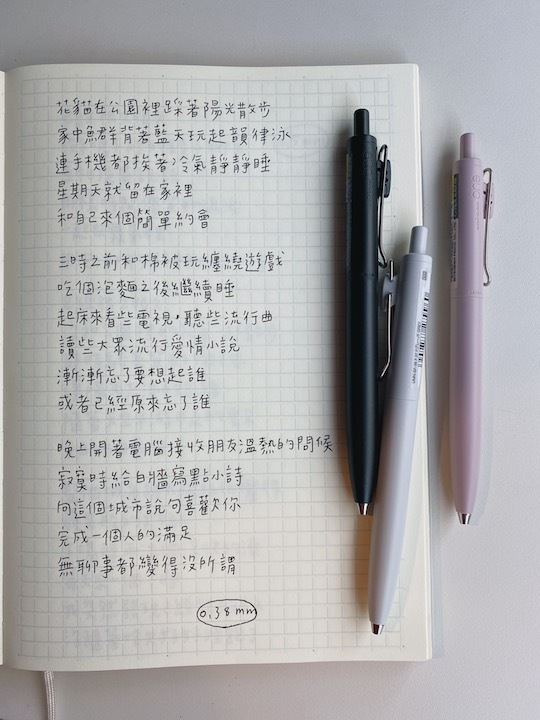 花貓在公園裡踩著陽光散步
家中魚群背著藍天玩起韻律泳
連手機都挨著冷氣靜靜睡
星期天就留在家裡
和自己來個簡單約會
三時之前和棉被玩纏繞遊戲
吃個泡麵之後繼續睡
起床來看些電視，聽些流行曲
讀些大眾流行愛情小說
漸漸忘了要想起誰
或者已經原來忘了誰
晚上開著電腦接收朋友溫熱的問候
寂寞時給白牆寫點小詩
向這個城市說句喜歡你
完成一個人的滿足
無聊事都變得沒所謂
0.38 mm